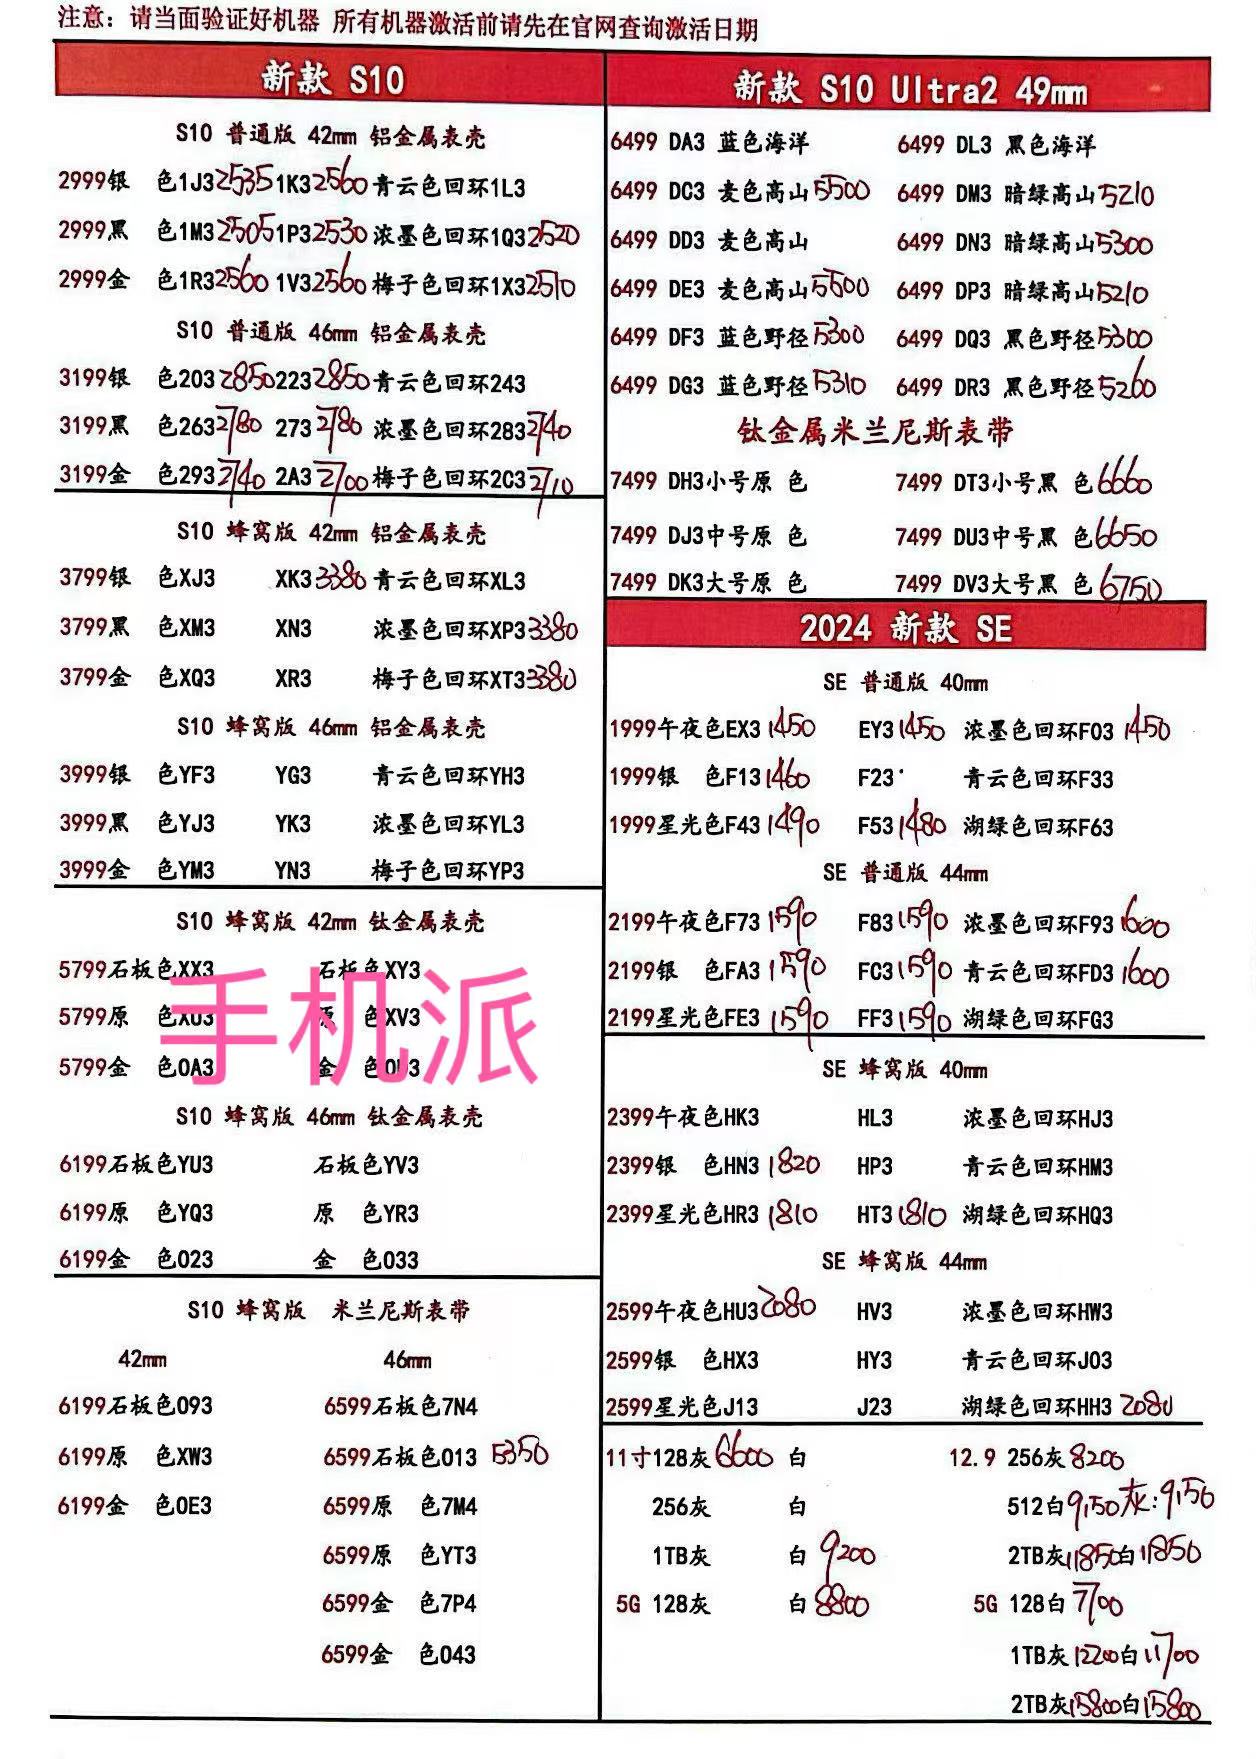 注意：请当面验证好机器 所有机器激活前请先在官网查询激活日期
新款 S10
S10 普通版 42mm 铝金属表壳
2999银 色1J3 2535 1K3 2560 青云色回环1L3
2999黑 色1M3 2505 1P3 2530 浓墨色回环1Q3 2520
2999金 色1R3 2560 1V3 2560 梅子色回环1X3 2510
S10 普通版 46mm 铝金属表壳
3199银 色203 2850 223 2850 青云色回环243
3199黑 色263 2780 273 2780 浓墨色回环283 2740
3199金 色293 2740 2A3 2700 梅子色回环2C3 2710
S10 蜂窝版 42mm 铝金属表壳
3799银 色XJ3 XK3 3380 青云色回环XL3
3799黑 色XM3 XN3 浓墨色回环XP3 3380
3799金 色XQ3 XR3 梅子色回环XT3 3380
S10 蜂窝版 46mm 铝金属表壳
3999银 色YF3 YG3 青云色回环YH3
3999黑 色YJ3 YK3 浓墨色回环YL3
3999金 色YM3 YN3 梅子色回环YP3
S10 蜂窝版 42mm 钛金属表壳
5799石板色XX3 石板色XY3
5799原 色XU3 原 色XV3
5799金 色0A3 金 
手机派
S10 蜂窝版 46mm 钛金属表壳
6199石板色YU3 石板色YV3
6199原 色YQ3 原 色YR3
6199金 色023 金 色033
S10 蜂窝版 米兰尼斯表带
42mm 46mm
6199石板色093 6599石板色7N4
6199原 色XW3 6599石板色013 5350
6199金 色0E3 6599原 色7M4
6599原 色YT3
6599金 色7P4
6599金 色043
新款 S10 Ultra2 49mm
6499 DA3 蓝色海洋 6499 DL3 黑色海洋
6499 DC3 麦色高山 5500 6499 DM3 暗绿高山 5210
6499 DD3 麦色高山 6499 DN3 暗绿高山 5300
6499 DE3 麦色高山 5500 6499 DP3 暗绿高山 5210
6499 DF3 蓝色野径 5300 6499 DQ3 黑色野径 5300
6499 DG3 蓝色野径 5310 6499 DR3 黑色野径 5260
钛金属米兰尼斯表带
7499 DH3小号原 色 7499 DT3小号黑 色 6660
7499 DJ3中号原 色 7499 DU3中号黑 色 6650
7499 DK3大号原 色 7499 DV3大号黑 色 6750
2024 新款 SE
SE 普通版 40mm
1999午夜色EX3 1450 EY3 1450 浓墨色回环F03 1450
1999银 色F13 1460 F23 青云色回环F33
1999星光色F43 1490 F53 1480 湖绿色回环F63
SE 普通版 44mm
2199午夜色F73 1590 F83 1590 浓墨色回环F93 1600
2199银 色FA3 1590 FC3 1590 青云色回环FD3 1600
2199星光色FE3 1590 FF3 1590 湖绿色回环FG3
SE 蜂窝版 40mm
2399午夜色HK3 HL3 浓墨色回环HJ3
2399银 色HN3 1820 HP3 青云色回环HM3
2399星光色HR3 1810 HT3 1810 湖绿色回环HQ3
SE 蜂窝版 44mm
2599午夜色HU3 2080 HV3 浓墨色回环HW3
2599银 色HX3 HY3 青云色回环J03
2599星光色J13 J23 湖绿色回环HH3 2080
11寸128灰 6600 白 12.9 256灰 8200
256灰 白 512白 9150 灰:9150
1TB灰 白 9200 2TB灰 11850 白 11850
5G 128灰 白 8800 5G 128白 7700
1TB灰 12200 白 11700
2TB灰 15800 白 15800